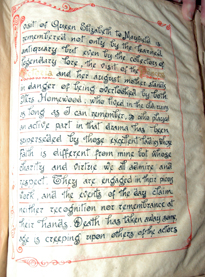 visit of Queen Elizabeth to
remembered not only by the learned
antiquary but even by the collectors of
legendary lore, the visit of the
and her august mother stands
in danger of being overlooked by both
Homewood, who lived in the
as long as I can remember, & who played
an active part in that drama has been
superseded by those excellent ladies whose
faith is different from mine but whose
charity and virtue we all admire and
respect. They are engaged in their pious
work, and the events of the day claim
neither recognition nor remembrance at
their hands. Death has taken away some,
age is creeping upon others of the actors